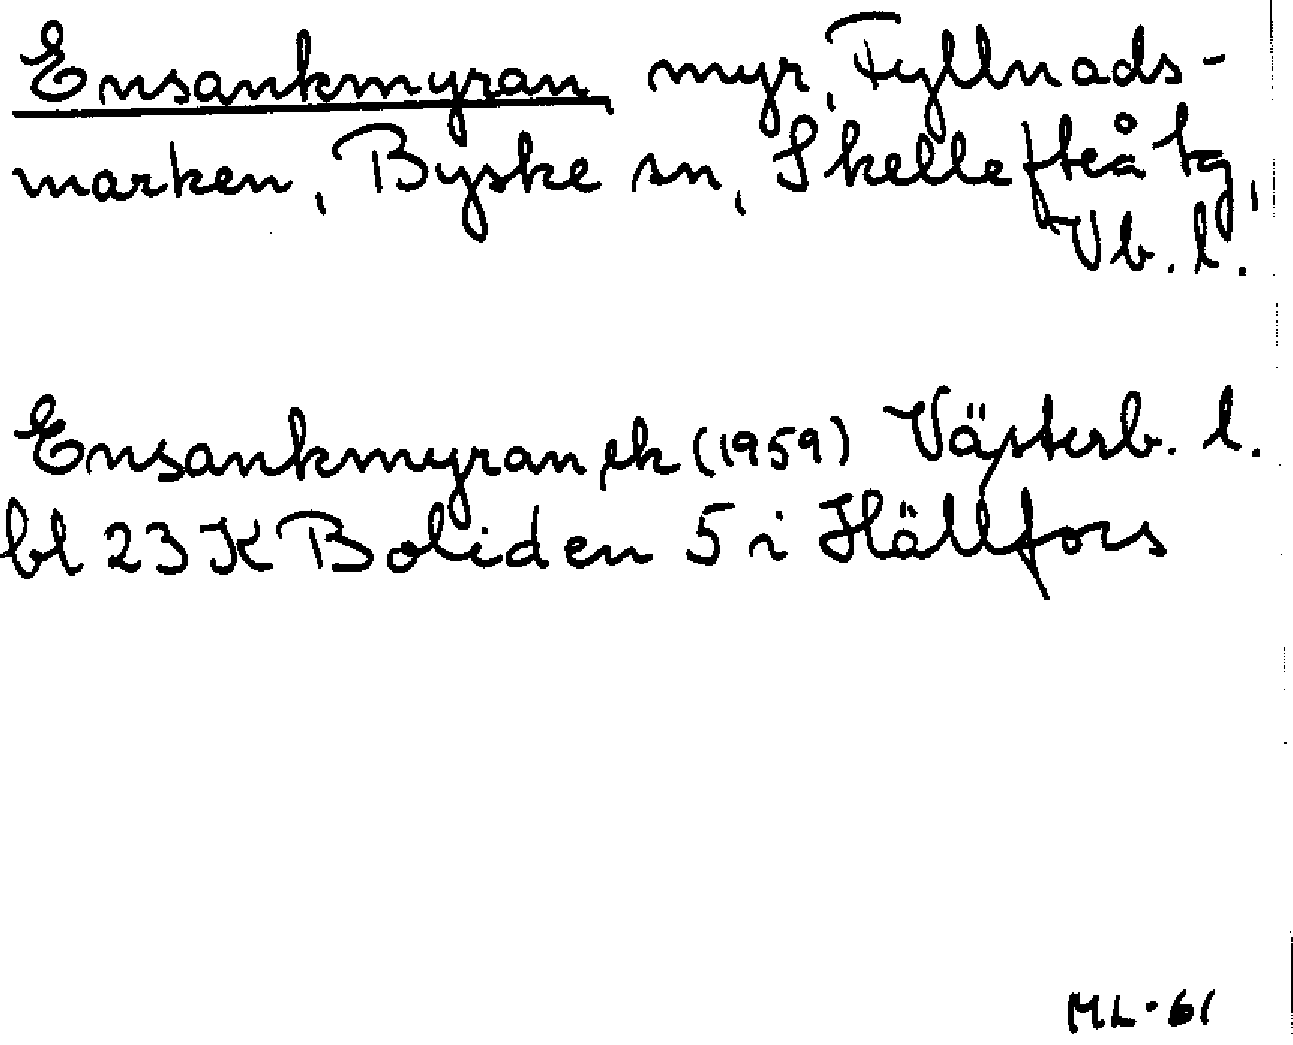 Ensankmyran, myr, Fyllnads-
marken, Byske sn, Skellefteå tg,
Vb. l.
Ensankmyran, ek (1959) Västerb. l.
bl 23 K Boliden 5 i Hällfors
ML-61